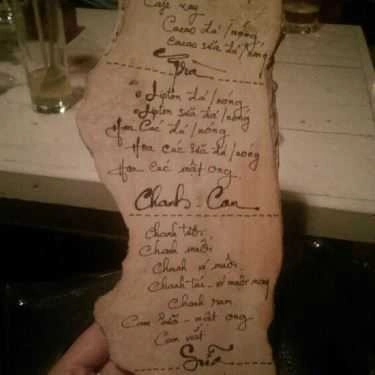 Cafe xay
Cacao đá/nóng
Cacao sữa đá/nóng
Trà
Lipton đá/nóng
Lipton sữa đá/nóng
Hoa Cúc đá/nóng
Hoa cúc sữa đá/nóng
Hoa cúc mật ong
Chanh - Cam
Chanh tươi
Chanh muối
Chanh xí muội
Chanh - tắc - xí muội xay
Chanh rum
Cam - mật ong
Cam vắt
Sữa